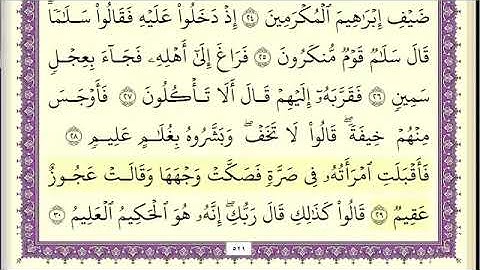 ضَيْفِ إِبْرَٰهِيمَ ٱلْمُكْرَمِينَ ﴿٢٤﴾ إِذْ دَخَلُوا۟ عَلَيْهِ فَقَالُوا۟ سَلَـٰمًا ۖ
قَالَ سَلَـٰمٌ قَوْمٌ مُّنكَرُونَ ﴿٢٥﴾ فَرَاغَ إِلَىٰٓ أَهْلِهِۦ فَجَآءَ بِعِجْلٍ
سَمِينٍ ﴿٢٦﴾ فَقَرَّبَهُۥٓ إِلَيْهِمْ قَالَ أَلَا تَأْكُلُونَ ﴿٢٧﴾ فَأَوْجَسَ
مِنْهُمْ خِيفَةً ۖ قَالُوا۟ لَا تَخَفْ ۖ وَبَشَّرُوهُ بِغُلَـٰمٍ عَلِيمٍ ﴿٢٨﴾
فَأَقْبَلَتِ ٱمْرَأَتُهُۥ فِى صَرَّةٍ فَصَكَّتْ وَجْهَهَا وَقَالَتْ عَجُوزٌ
عَقِيمٌ ﴿٢٩﴾ قَالُوا۟ كَذَٰلِكِ قَالَ رَبُّكِ ۖ إِنَّهُۥ هُوَ ٱلْحَكِيمُ ٱلْعَلِيمُ ﴿٣٠﴾
٥٢١